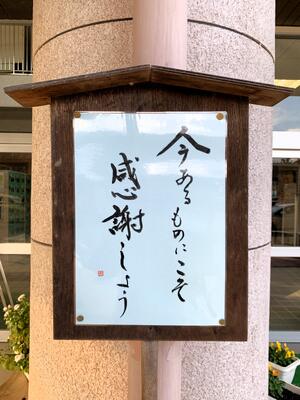 今あるものにこそ
感謝しよう